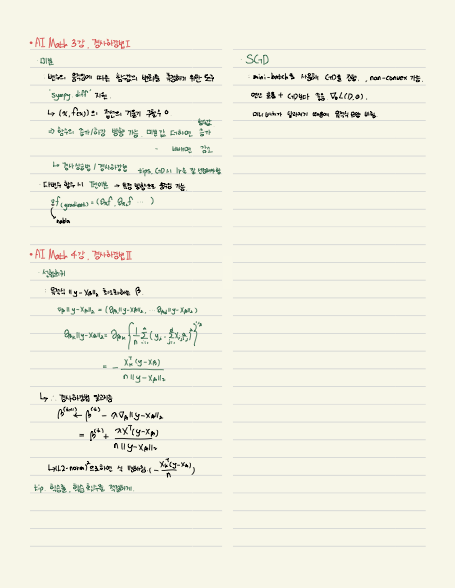 • AI Math 3강, 경사하강법 I
· 미분
변수의 움직임에 따른 함수값의 변화를 측정하기 위한 도구
'sympy.diff' 지원.
↳ (x, f(x))의 접선의 기울기 구할수 o
⇒ 함수의 증가/하강 방향 가능. 미분값 더하면, 증가
함수값
- 빼면 감소
↳ 경사상승법 / 경사하강법 tips. GD시 lr을 잘 선택해야함
· 다변수 함수 시 편미분 → 방향으로 움직임 가능.
∇f (gradient) = (∂x₁f, ∂x₂f, ⋯ )
nabla
• AI Math 4강, 경사하강법 II
· 선형회귀
: 목적식 ||y - Xβ||₂ 최소화하는 β
∇β||y - Xβ||₂ = (∂β₁||y - Xβ||₂, ⋯ ∂βd||y - Xβ||₂)
∂βk||y - Xβ||₂ = ∂βk { 1/n Σ (yᵢ - Σ Xᵢⱼβⱼ)² }^1/2
= - Xₖᵀ(y - Xβ) / n||y - Xβ||₂
↳ ∴ 경사하강법 알고리즘
β^(t+1) ← β^(t) - λ∇β||y - Xβ||₂
= β^(t) + λXᵀ(y - Xβ) / n||y - Xβ||₂
↳ (L2-norm)²으로하면 식 간단해짐 (- Xₖᵀ(y - Xβ) / n)
tip. 학습률, 학습횟수를 적절하게.
· SGD
: mini-batch를 사용하여 GD를 진행. , non-convex 가능.
연산 효율 + GD보다 좋음 ∇θL(D, θ).
미니배치가 달라지기 때문에 목적식 모양 바뀜.